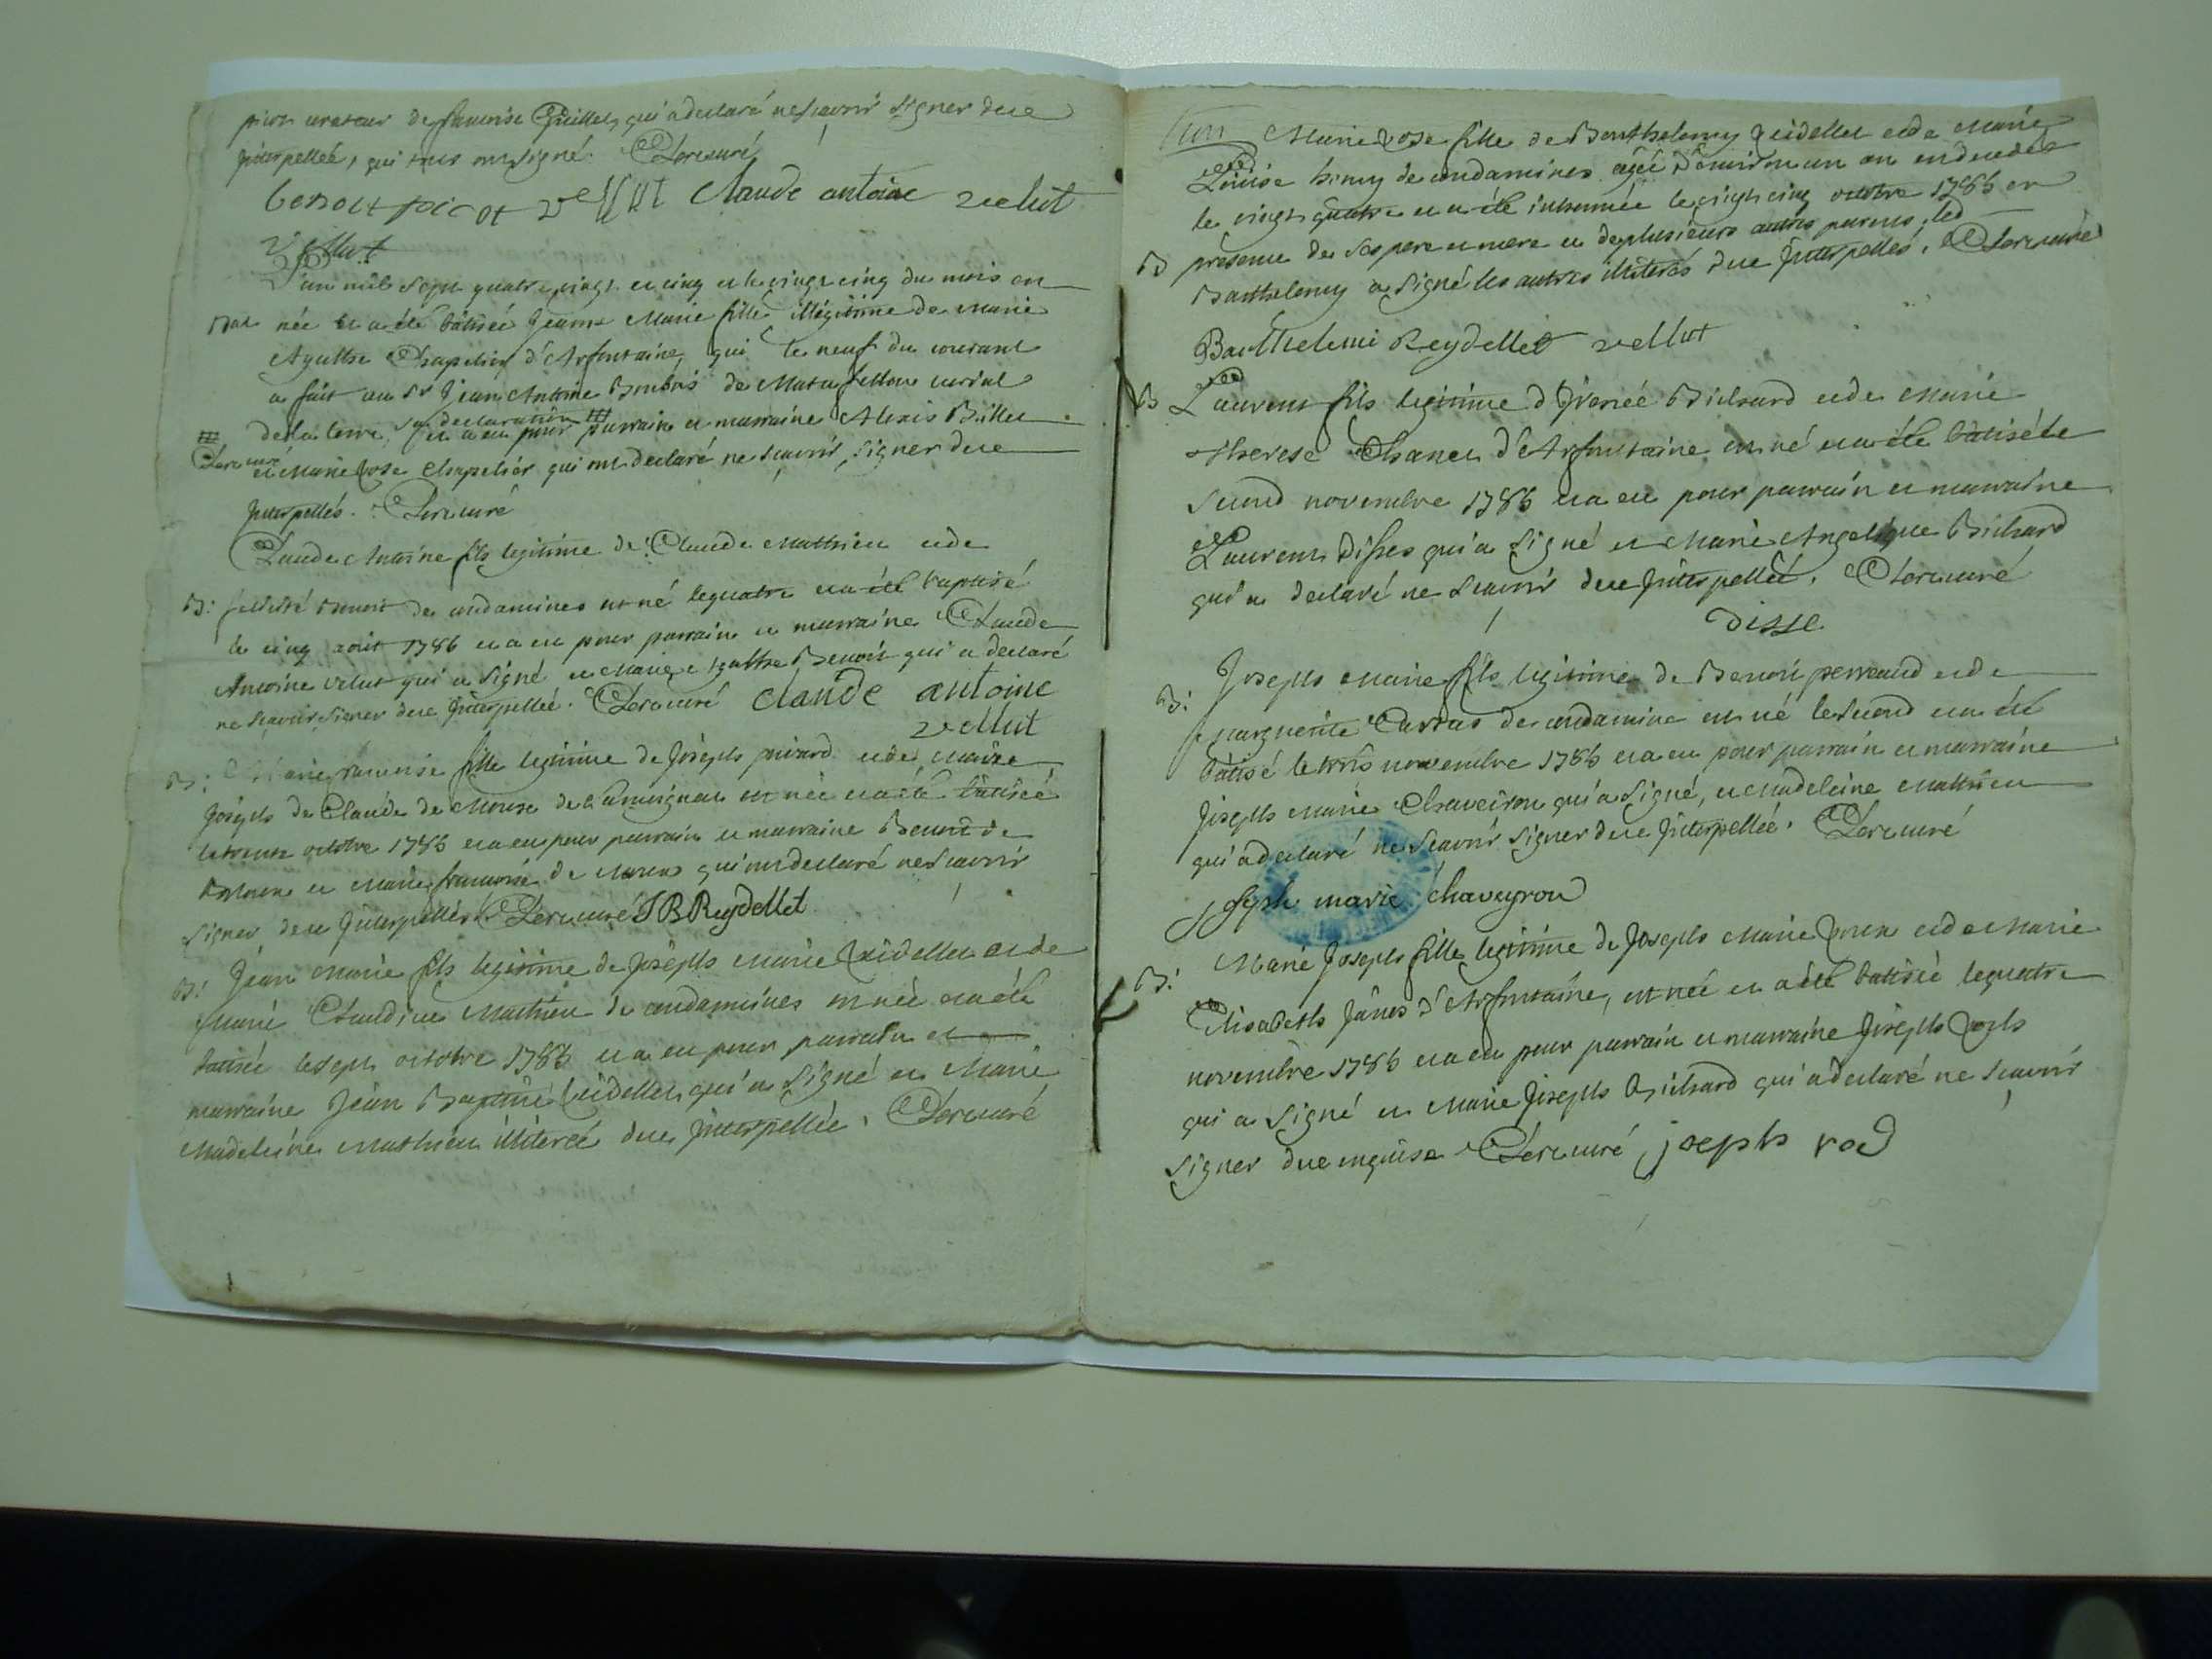 qui a declaré ne scavoir signer de ce
qui tous ont signé. curé
benoit picot vellut claude antoine velut
vellut
L'an mil sept quatre vingt et cinq et le vingt cinq du mois est
Bat née et a été batisée Jeanne Marie fille illégitime de Marie
d'Arfontaine, qui le neuf du courant
a fait au Sr Jean Antoine de Matafellon curial
de la terre, sa declaration et a eu pour parrain et marraine Alexis Billet
curé et Marie Rose Chapelier qui ont declaré ne scavoir signer de ce
Interpellés. curé
Claude Antoine fils legitime de Claude Mathieu et de
B: Benoit de condamines est né le quatre et a été baptisé
le cinq août 1786 et a eu pour parrain et marraine Claude
Antoine velut qui a signé et Marie Benoit qui a declaré
ne scavoir signer de ce Interpellée. curé claude antoine
vellut
B: Marie francoise fille legitime de Joseph et de Marie
Joseph de Claude de est née et a été batisée
le trente octobre 1785 et a eu pour parrain et marraine Benoit de
et Marie francoise de qui ont declaré ne scavoir
signer de ce Interpellés. curé JB Reydellet
B: Jean Marie fils legitime de Joseph Marie Reidellet et de
Marie Claudine Mathieu de condamines est né et a été
batisé le sept octobre 1785 et a eu pour parrain et
marraine Jean Baptiste Reidellet qui a signé et Marie
Madeleine Mathieu illiterée de ce Interpellée. curé
Marie Rose fille de Barthelemy Reidellet et de Marie
Louise de condamines agée d'environ un an est decedée
le vingt quatre et a été inhumée le vingt cinq octobre 1785 en
presence de ses pere et mere et de plusieurs autres parens, led
Barthelemy a signé les autres illiterés de ce Interpellés. curé
Barthelemi Reydellet vellut
B Laurent fils legitime d'Irenée Bichard et de Marie
therese d'Arfontaine est né et a été batisé le
second novembre 1785 et a eu pour parrain et marraine
Laurent Disses qui a signé et Marie Angelique Bichard
qui a declaré ne scavoir de ce Interpellée. curé
disse
B: Joseph Marie fils legitime de Benoit perreaud et de
Marguerite Carras de condamine est né le second et a été
batisé le trois novembre 1785 et a eu pour parrain et marraine
Joseph Marie Chaveiron qui a signé, et Madeleine Mathieu
qui a declaré ne scavoir signer de ce Interpellée. curé
joseph marie chaveyron
B: Marie Joseph fille legitime de Joseph Marie et de Marie
Elisabeth d'Arfontaine, est née et a été batisée le quatre
novembre 1785 et a eu pour parrain et marraine Joseph
qui a signé et Marie Joseph Bichard qui a declaré ne scavoir
signer de ce enquise curé joseph rod